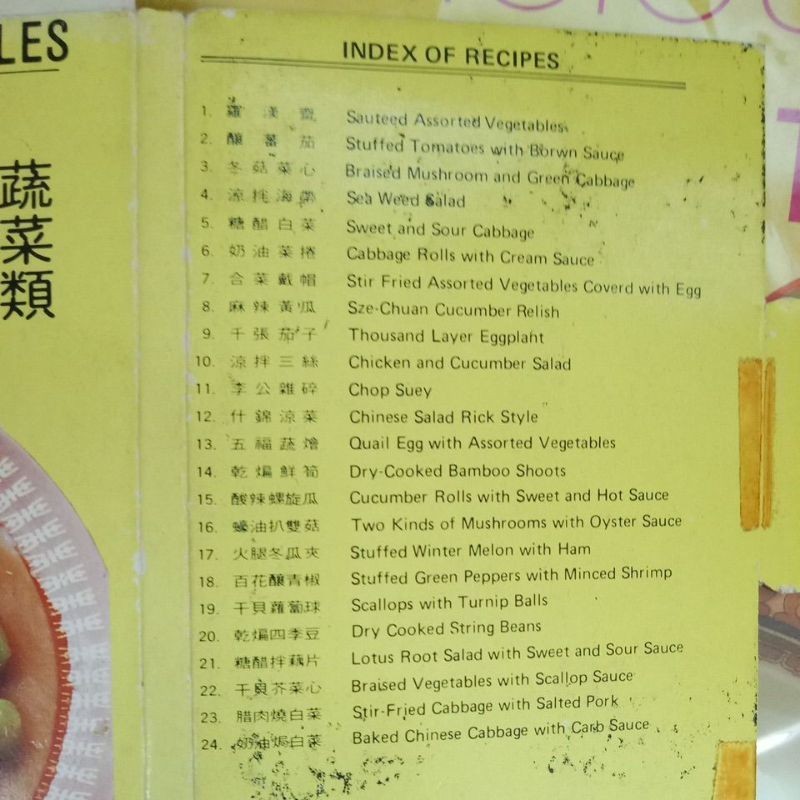 LES
蔬菜類
INDEX OF RECIPES
1. 羅漢齋 Sauteed Assorted Vegetables
2. 釀蕃茄 Stuffed Tomatoes with Borwn Sauce
3. 冬菇菜心 Braised Mushroom and Green Cabbage
4. 涼拌海帶 Sea Weed Salad
5. 糖醋白菜 Sweet and Sour Cabbage
6. 奶油菜捲 Cabbage Rolls with Cream Sauce
7. 合菜戴帽 Stir Fried Assorted Vegetables Coverd with Egg
8. 麻辣黃瓜 Sze-Chuan Cucumber Relish
9. 千張茄子 Thousand Layer Eggplant
10. 涼拌三絲 Chicken and Cucumber Salad
11. 李公雜碎 Chop Suey
12. 什錦涼菜 Chinese Salad Rick Style
13. 五福蔬燴 Quail Egg with Assorted Vegetables
14. 乾煸鮮筍 Dry-Cooked Bamboo Shoots
15. 酸辣螺旋瓜 Cucumber Rolls with Sweet and Hot Sauce
16. 蠔油扒雙菇 Two Kinds of Mushrooms with Oyster Sauce
17. 火腿冬瓜夾 Stuffed Winter Melon with Ham
18. 百花釀青椒 Stuffed Green Peppers with Minced Shrimp
19. 干貝蘿蔔球 Scallops with Turnip Balls
20. 乾煸四季豆 Dry Cooked String Beans
21. 糖醋拌藕片 Lotus Root Salad with Sweet and Sour Sauce
22. 干貝芥菜心 Braised Vegetables with Scallop Sauce
23. 腊肉燒白菜 Stir-Fried Cabbage with Salted Pork
24. 奶油焗白菜 Baked Chinese Cabbage with Carb Sauce